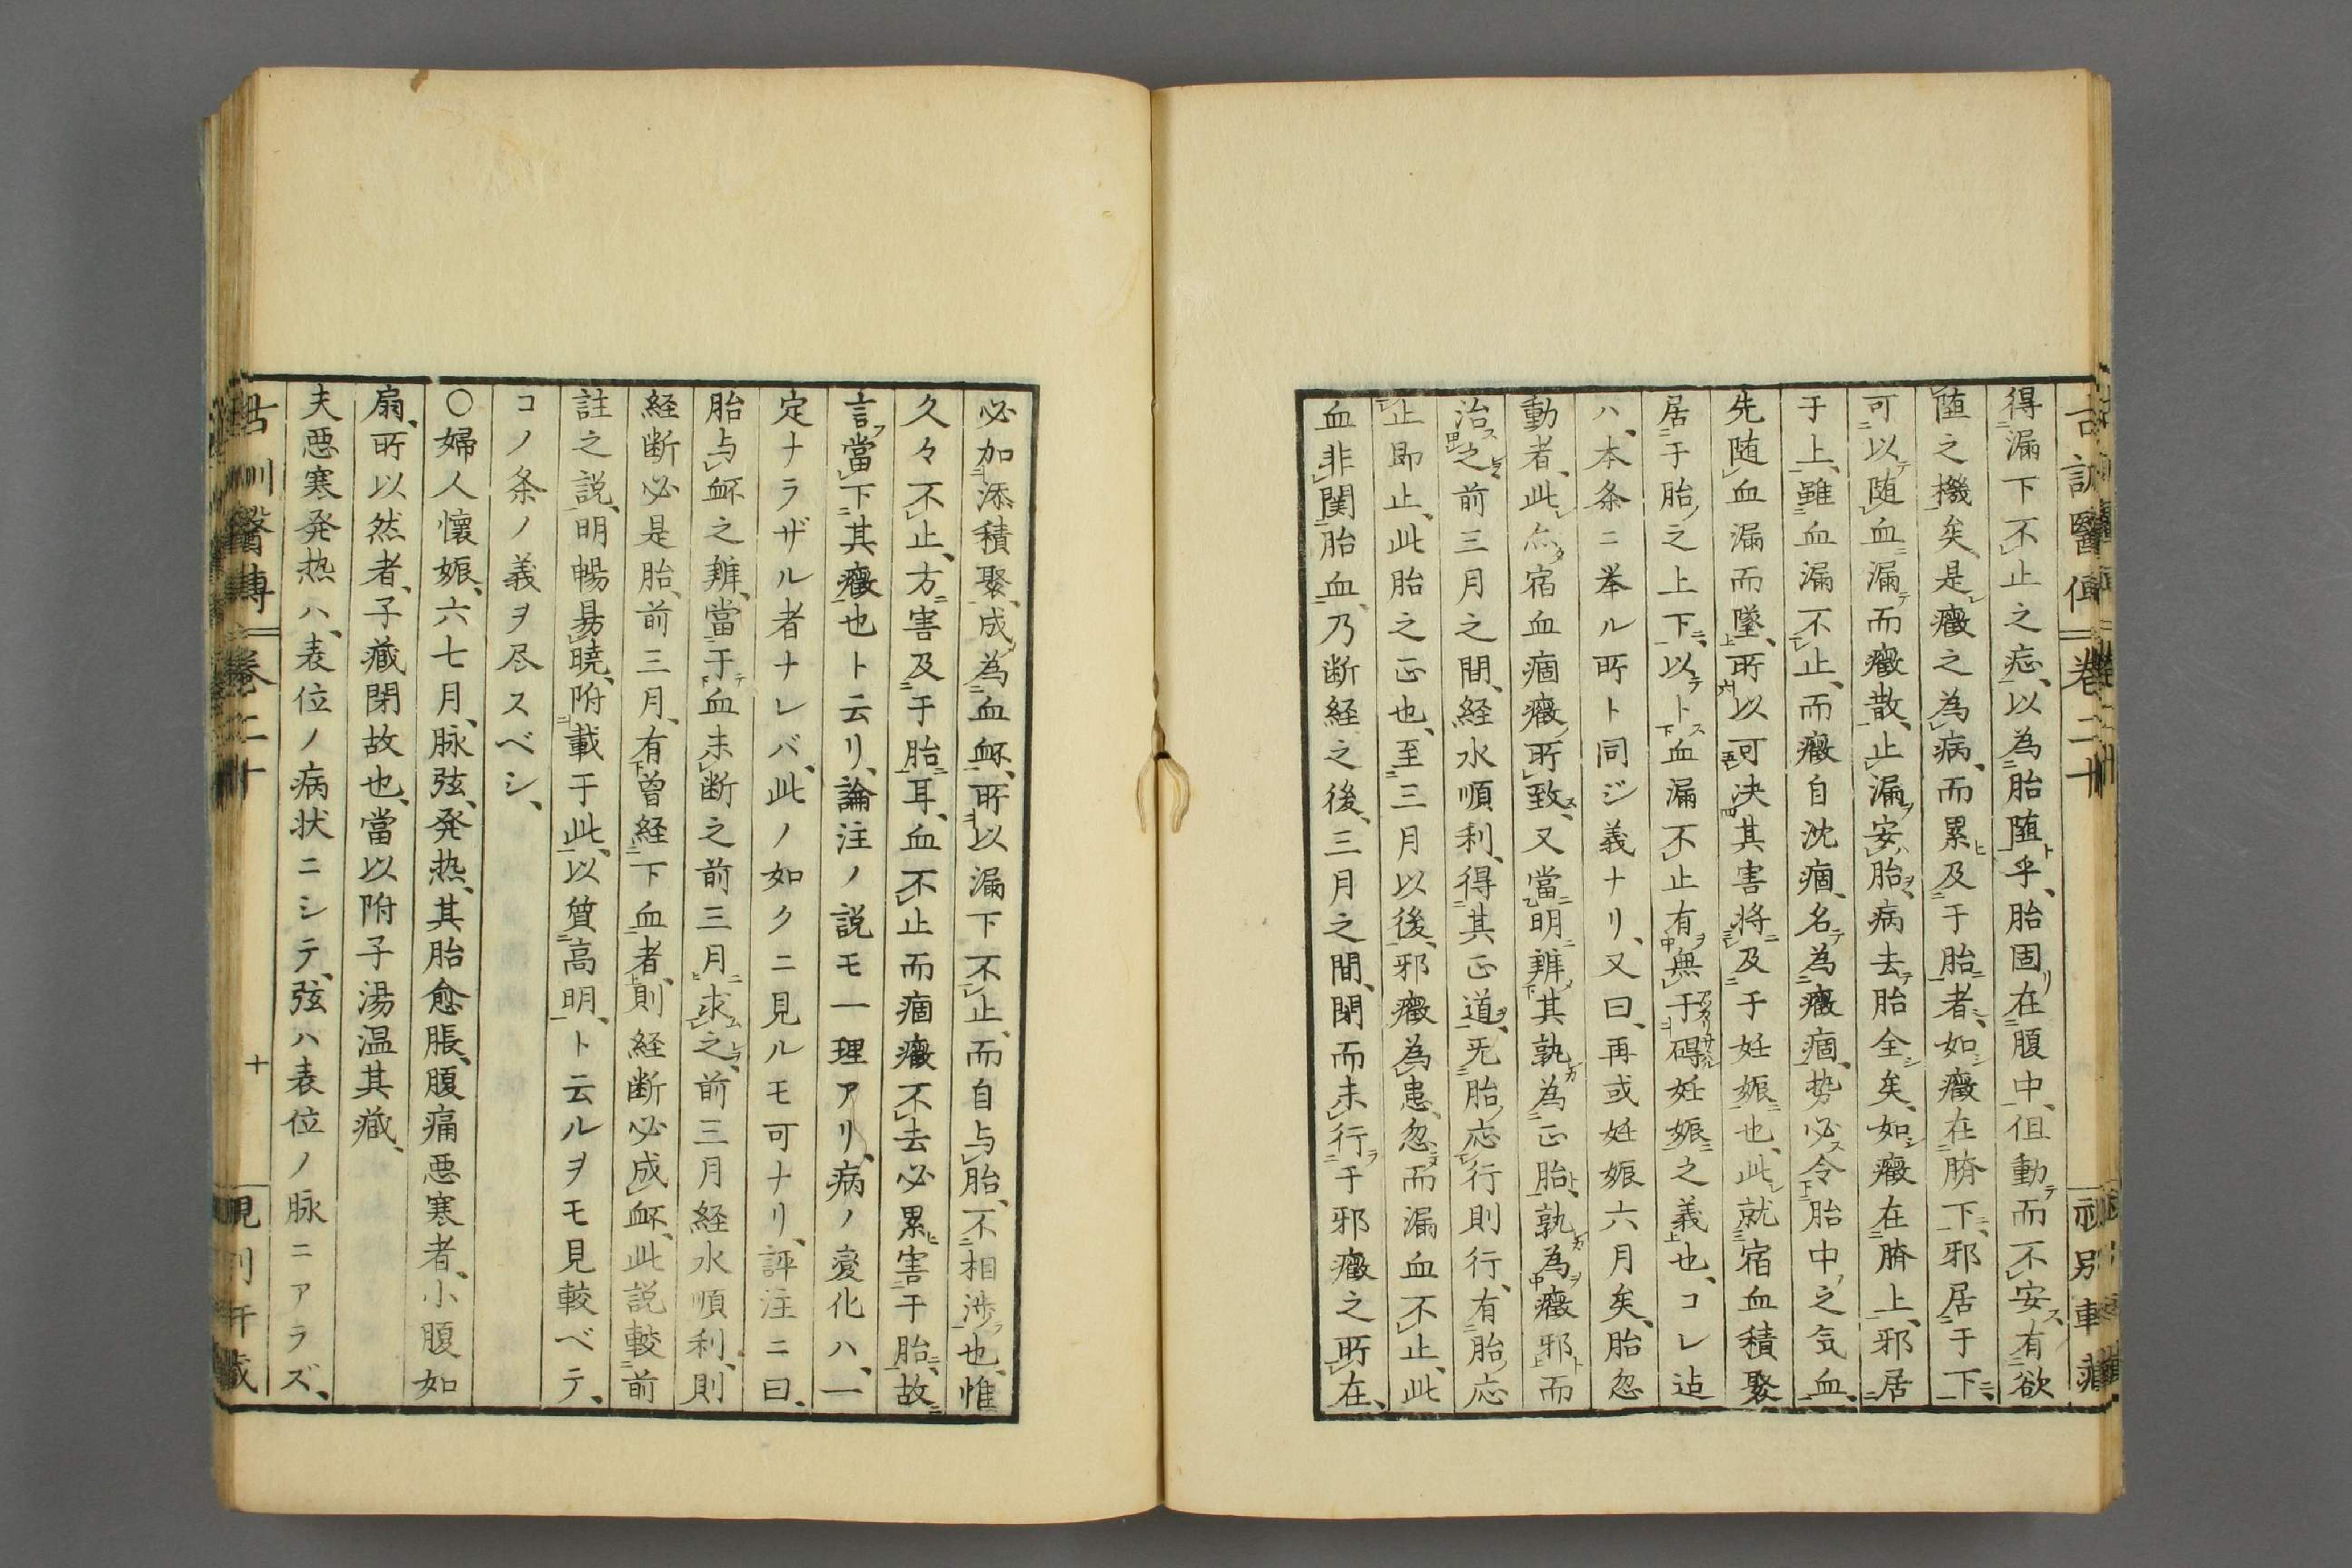 古訓醫傳 卷二十
得漏下不止之症、以為胎墮乎、胎固在腹中、但動而不安、有欲
墮之機矣、是癥之為病、而累及于胎者、如癥在臍下、邪居于下、
可以随血漏而癥散、止漏安胎、病去胎全矣、如癥在臍上、邪居
于上、雖血漏不止、而癥自沈痼、名為癥痼、勢必令胎中之気血、
先随血漏而墜、所以可決其害将及于妊娠也、此就宿血積聚
居于胎之上下、以卜血漏不止有無于碍妊娠之義也、コレ迠
ハ、本条ニ挙ル所ト同ジ義ナリ、又曰、再或妊娠六月矣、胎忽
動者、此亦宿血痼癥所致、又當明辨其孰為正胎、孰為癥邪而
治之、前三月之間、経水順利、得其正道、旡胎応行則行、有胎応
止即止、此胎之正也、至三月以後、邪癥為患、忽而漏血不止、此
血非関胎血、乃断経之後、三月之間、閉而未行于邪癥之所在、
必加添積聚、成為血衃、所以漏下不止、而自与胎、不相渉也、惟
久々不止、方害及于胎耳、血不止而痼癥不去必累害于胎、故
言當下其癥也ト云リ、論注ノ説モ一理アリ、病ノ変化ハ、一
定ナラザル者ナレバ、此ノ如クニ見ルモ可ナリ、評注ニ曰、
胎与衃之辨、當于血未断之前三月求之、前三月経水順利、則
経断必是胎、前三月、有曽経下血者、則経断必成衃、此説較前
註之説、明暢易曉、附載于此、以質高明、ト云ルヲモ見較ベテ、
コノ条ノ義ヲ尽スベシ、
○婦人懷娠、六七月、脉弦、発热、其胎愈脹、腹痛悪寒者、小腹如
扇、所以然者、子藏閉故也、當以附子湯温其藏、
夫悪寒発热ハ、表位ノ病状ニシテ、弦ハ表位ノ脉ニアラズ、
卷二十
十